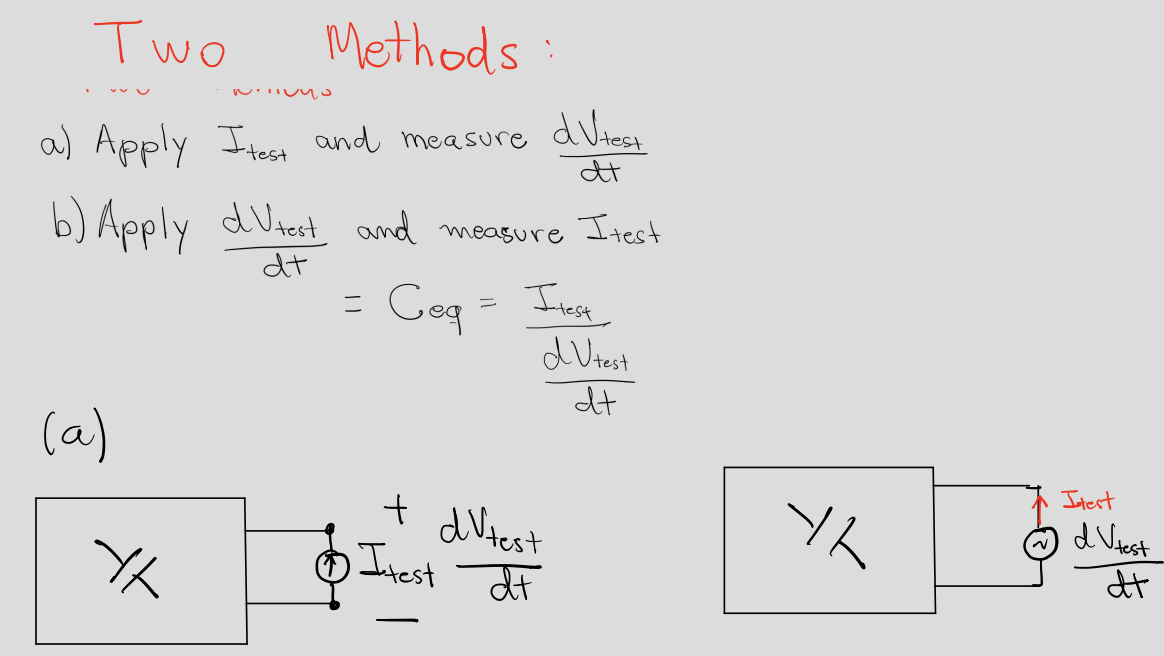 Two Methods:
a) Apply I_test and measure dV_test/dt
b) Apply dV_test/dt and measure I_test
= C_eq = I_test / (dV_test/dt)
(a)
+
I_test dV_test/dt
−
I_test
~
dV_test/dt